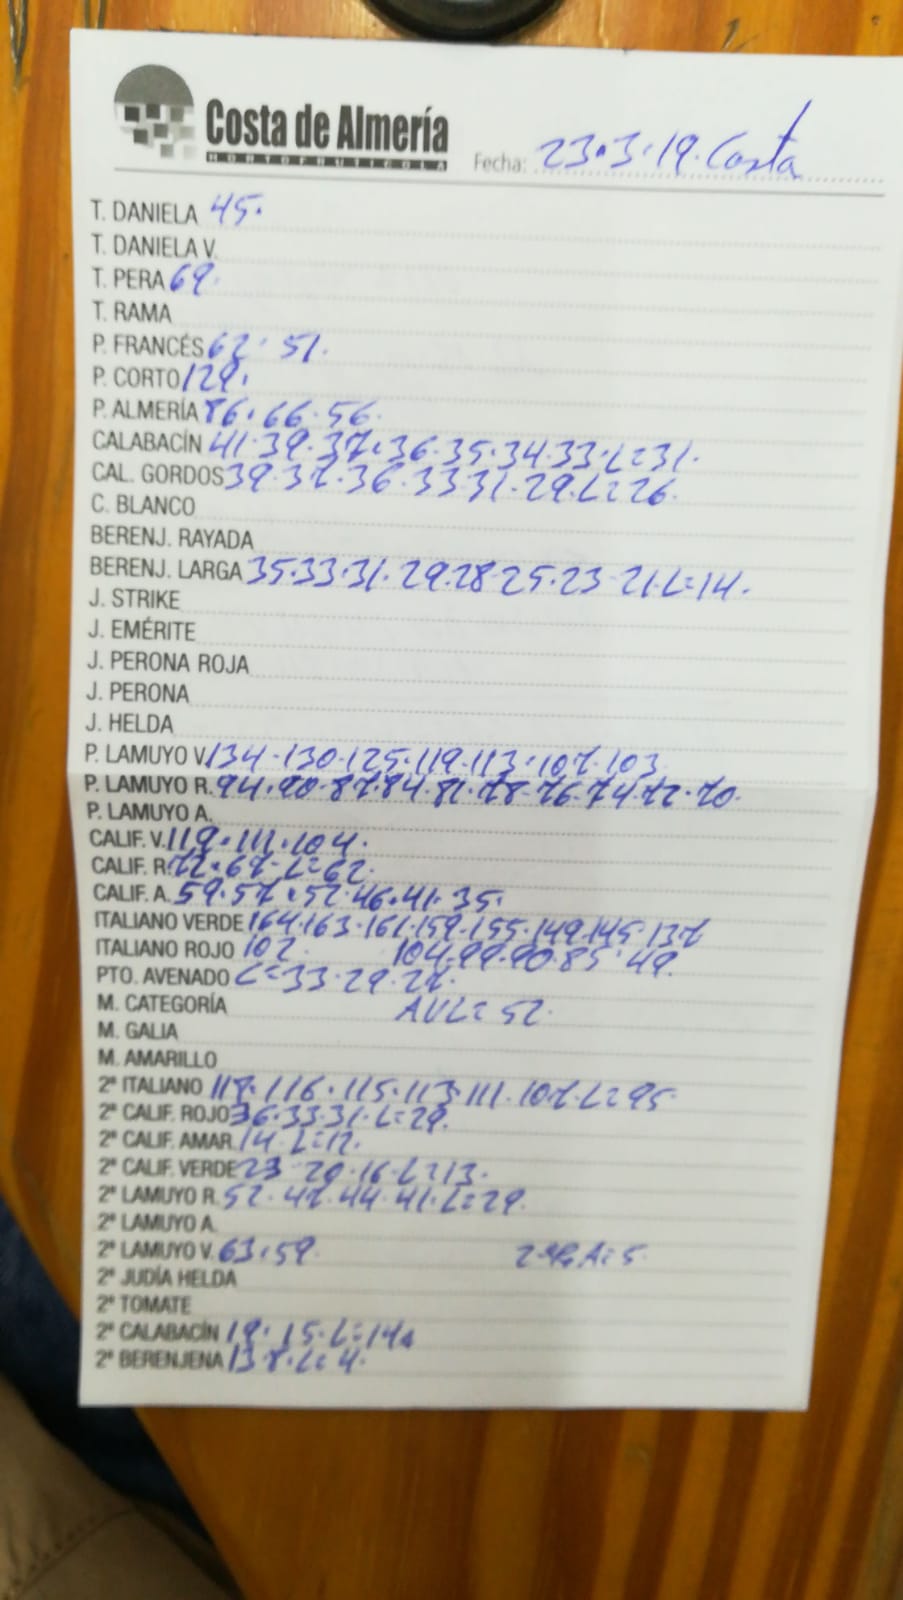 Costa de Almería
HORTOFRUTICOLA
Fecha: 23.3.19. Costa
T. DANIELA 45.
T. DANIELA V.
T. PERA 69.
T. RAMA
P. FRANCÉS 62. 51.
P. CORTO 129.
P. ALMERÍA 86. 66. 56.
CALABACÍN 41. 39. 37. 36. 35. 34. 33. L=31.
CAL. GORDOS 39. 37. 36. 33 31. 29. L=26.
C. BLANCO
BERENJ. RAYADA
BERENJ. LARGA 35. 33. 31. 29. 28. 25. 23 21. L=14.
J. STRIKE
J. EMÉRITE
J. PERONA ROJA
J. PERONA
J. HELDA
P. LAMUYO V. 134. 130. 125. 119. 113. 107. 103
P. LAMUYO R. 94. 90. 87. 84. 81. 78. 76. 74. 72. 70.
P. LAMUYO A.
CALIF. V. 119. 111. 104.
CALIF. R. 72. 67. L=62.
CALIF. A. 59. 57. 52. 46. 41. 35.
ITALIANO VERDE 164. 163. 161. 159. 155. 149. 145. 137
ITALIANO ROJO 102. 104. 99. 90. 85. 49.
PTO. AVENADO L=33. 29. 27.
M. CATEGORÍA AVL=52.
M. GALIA
M. AMARILLO
2ª ITALIANO 118. 116. 115. 113. 111. 107. L=95
2ª CALIF. ROJO 36. 33. 31. L=29.
2ª CALIF. AMAR. 14. L=12.
2ª CALIF. VERDE 23 20. 16. L=13.
2ª LAMUYO R. 52. 47. 44. 41. L=29.
2ª LAMUYO A.
2ª LAMUYO V. 63. 59.
2ª JUDÍA HELDA
2ª TOMATE
2ª CALABACÍN 19. 15. L=14.
2ª BERENJENA 13 8. L=4.